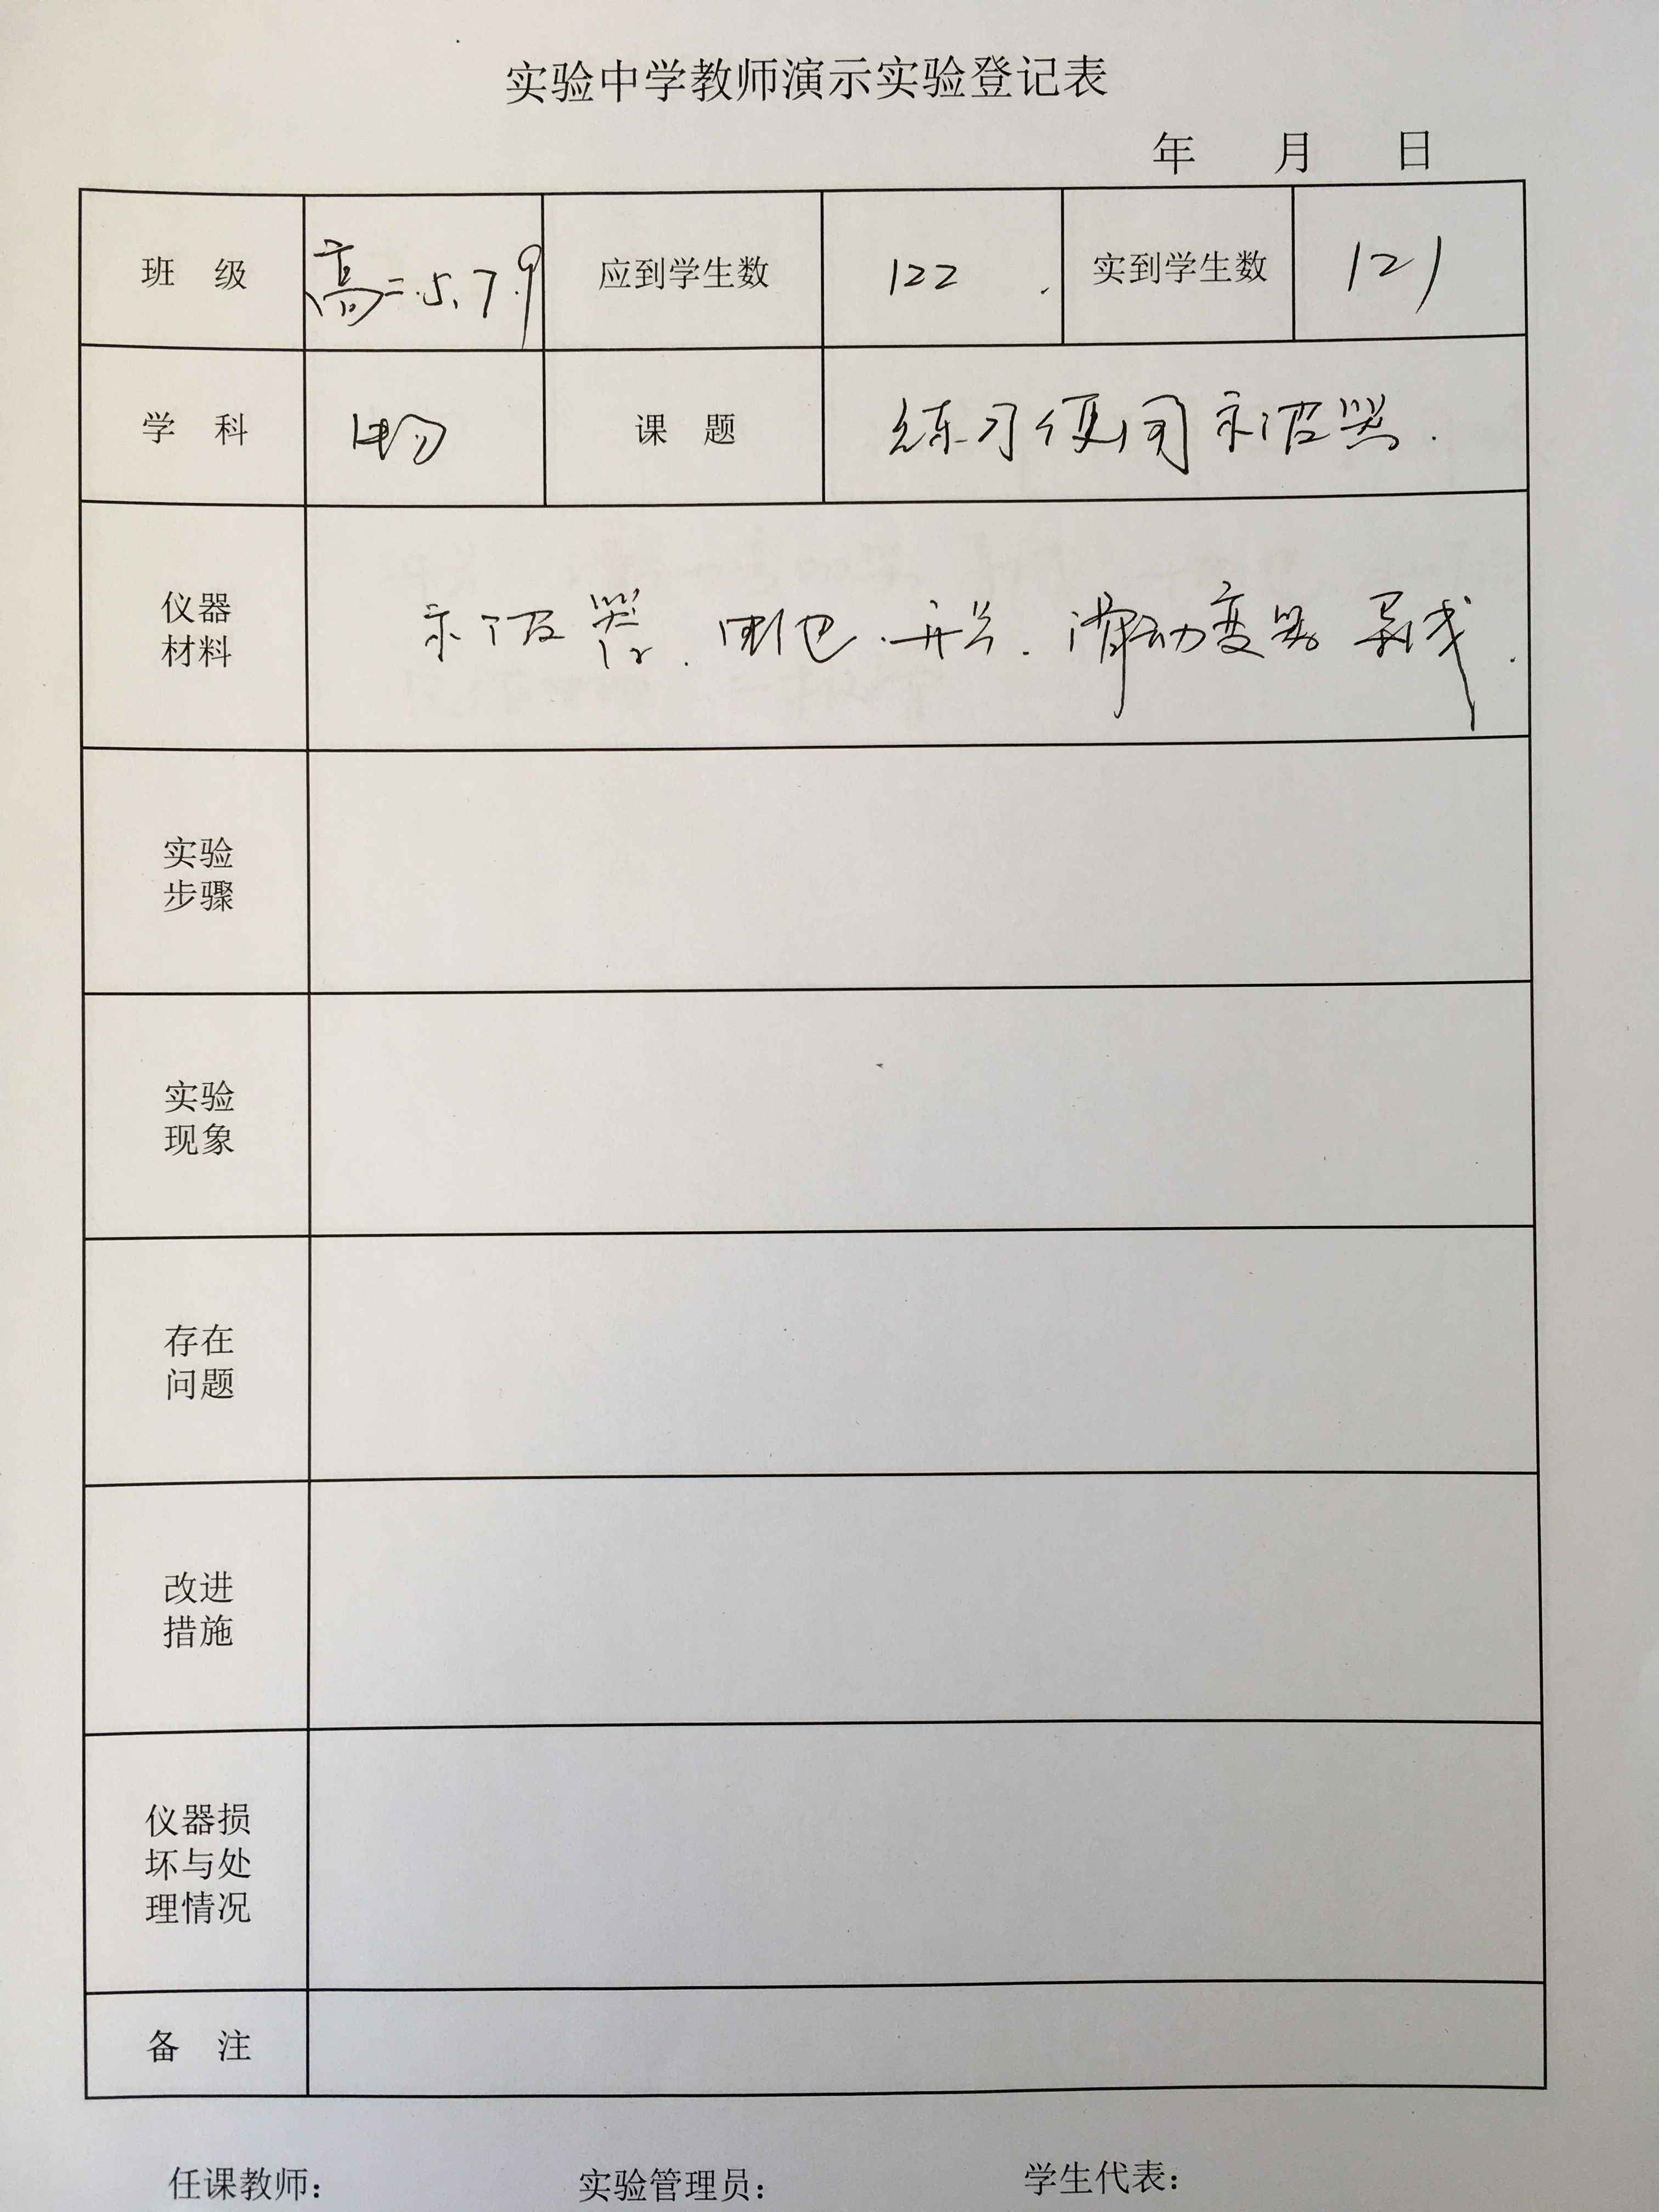 实验中学教师演示实验登记表
年 月 日
班 级 高二.5、7.9 应到学生数 122 . 实到学生数 121
学 科 物 课 题 练习使用示波器.
仪器
材料
示波器. 电池.开关.滑动变器 导线.
实验
步骤
实验
现象
存在
问题
改进
措施
仪器损
坏与处
理情况
备 注
任课教师: 实验管理员: 学生代表: